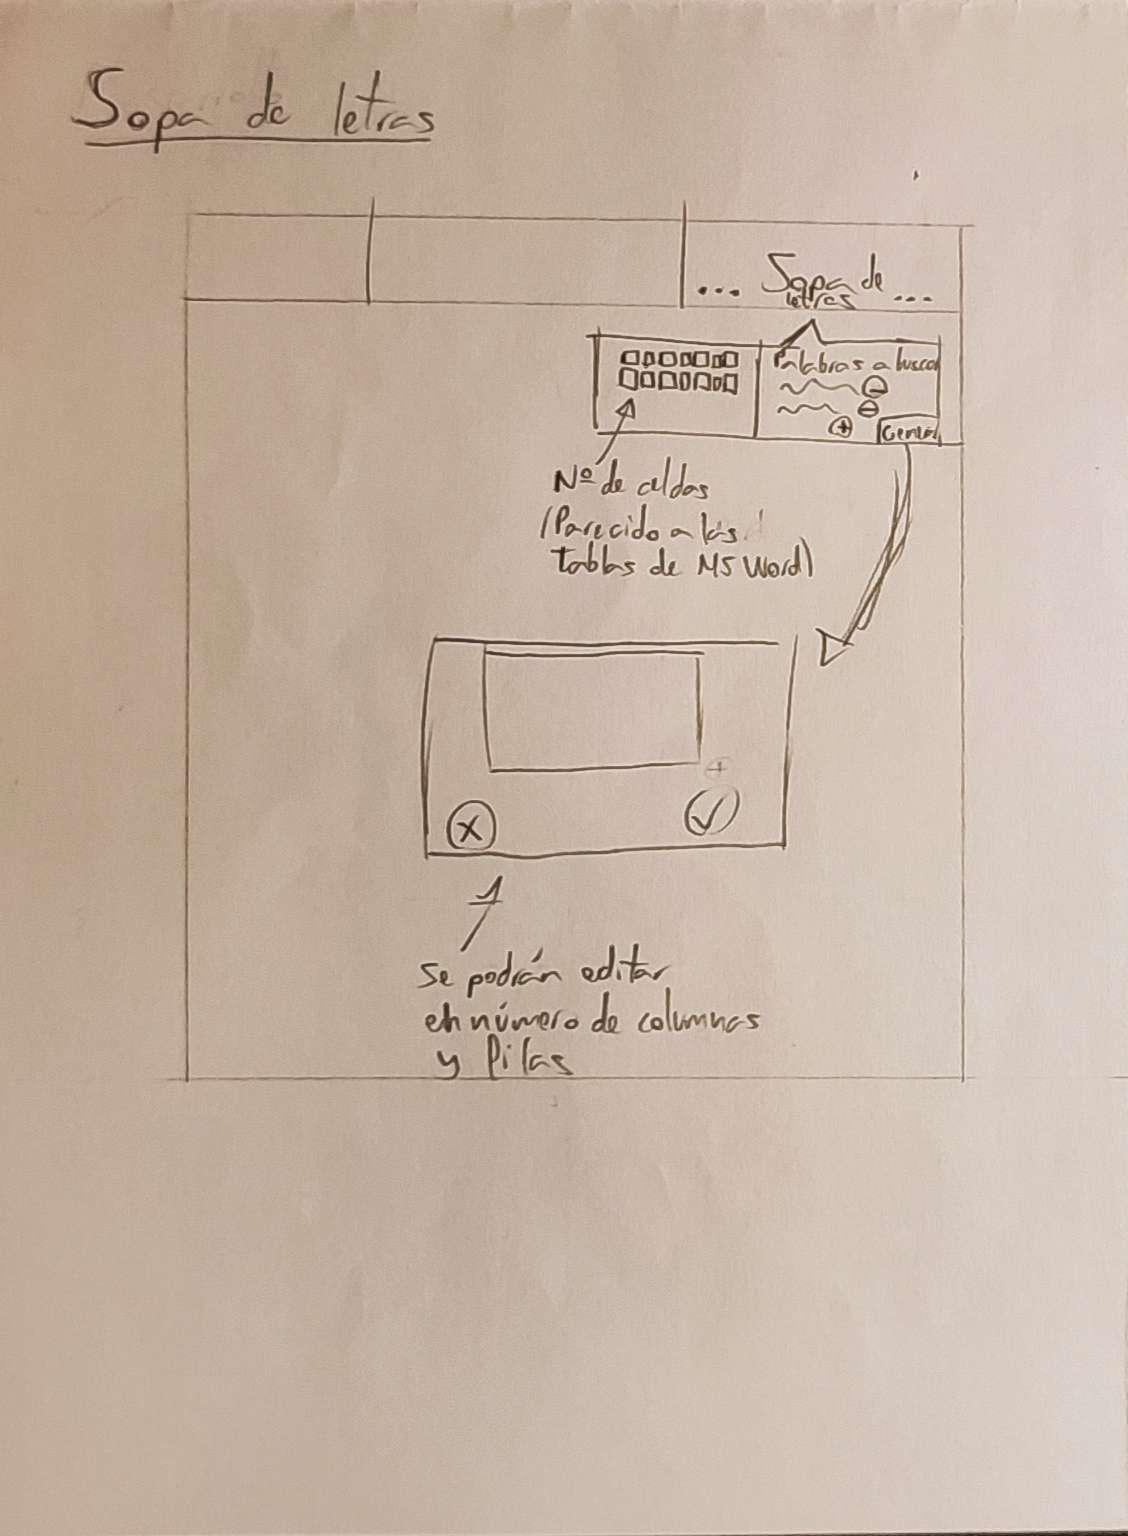 Sopa de letras
... Sopa de ...
letras
Palabras a buscar
Nº de celdas
(Parecido a las
tablas de MS Word)
Se podrán editar
en número de columnas
y filas